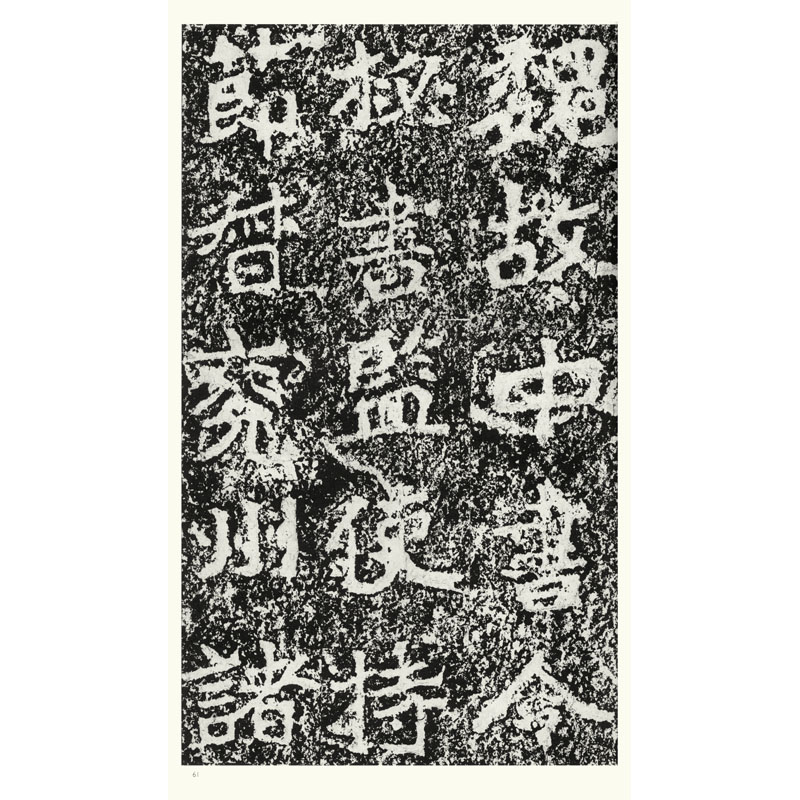 魏故中書令
秘書監使持
節督兖州諸
61